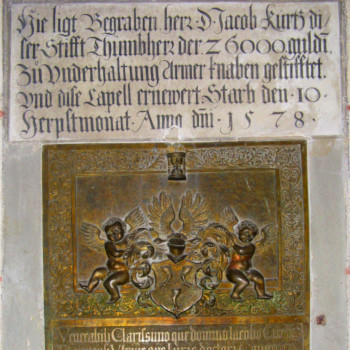 Hie ligt Begraben herr D. Jacob Kurtz di
ser Stifft Thumbherr der 26000 guldn̄
Zu Vnderhaltung Armer knaben gestifftet.
Vnd dise Capell ernewert Starb den · 10 ·
Herpstmonat · Anno dm̄ · 1578 ·
Venerabili Clarissimo que domino Iacobo